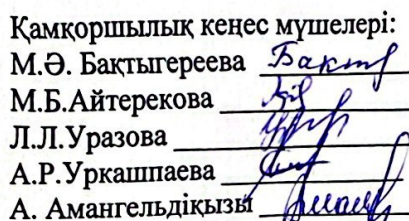 Қамқоршылық кеңес мүшелері:
М.Ә. Бақтыгереева
М.Б.Айтерекова
Л.Л.Уразова
А.Р.Уркашпаева
А. Амангельдіқызы